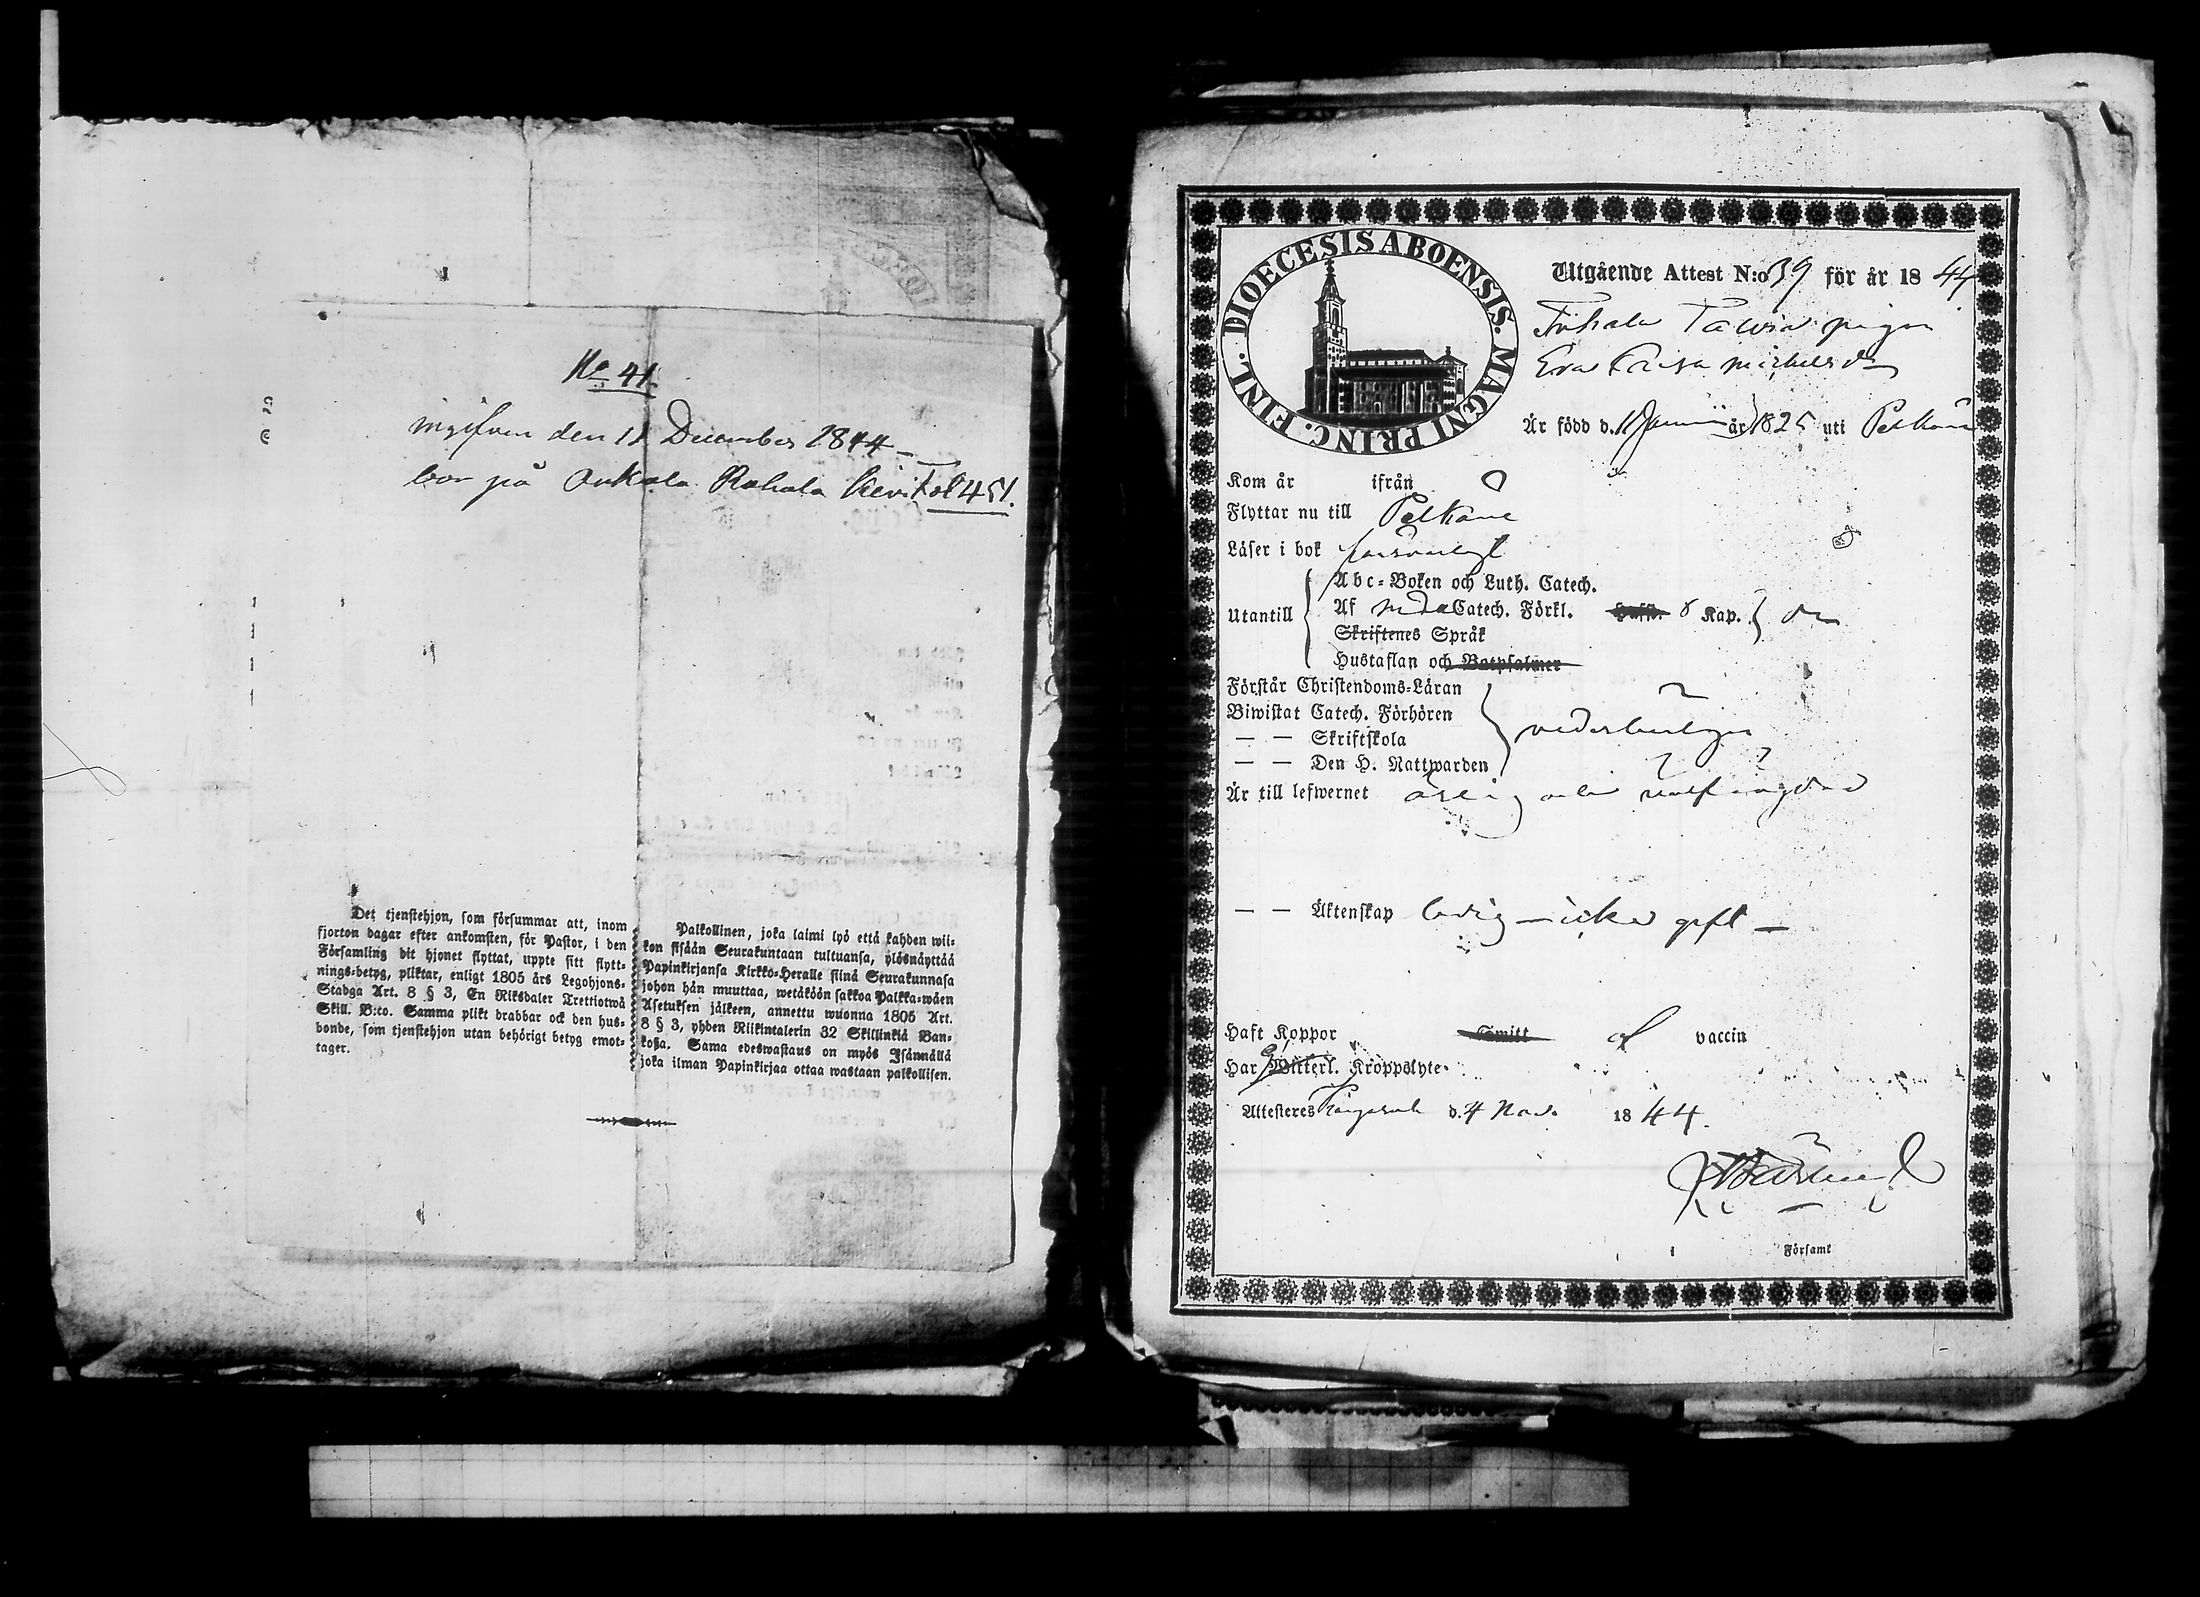 No 41.
ingifven den 11 December 1844 –
bor på Onkala Rahala Fol 451.
Det tjenstehjon, som försummar att, inom
fjorton dagar efter ankomsten, för Pastor, i den
Församling dit hjonet flyttat, uppte sitt flytt-
nings-betyg, pliktar, enligt 1805 års Legohjons-
Stadga Art. 8 § 3, En Riksdaler Trettiotwå
Skill. B:co. Samma plikt drabbar ock den hus-
bonde, som tjenstehjon utan behörigt betyg emot-
tager.
Palkollinen, joka laimi lyö että kahden wii-
kon sisään Seurakuntaan tultuansa, ylösnäyttää
Papinkirjansa Kirkko-Heralle siinä Seurakunnasa
johon hän muuttaa, wetäköön sakkoa Palkka-wäen
Asetuksen jälkeen, annettu wuonna 1805 Art.
8 § 3, yhden Riikintalerin 32 Skillinkiä Ban-
koßa. Sama edeswastaus on myös Isännällä
joka ilman Papinkirjaa ottaa wastaan palkollisen.
DIOECESIS ABOENSIS. MAGNI PRINC. FINL.
Utgående Attest N:o 39 för år 1844
pigan
Eva Michelsdr
Är född d. 1 Januarii år 1825 uti Pelkäne
Kom år ifrån
Flyttar nu till Pelkäne
Läser i bok försvarligt
Utantill
Abc-Boken och Luth. Catech.
Af Catech. Förkl. Hufst. 8 Kap.
Skriftenes Språk
Hustaflan och Botpsalmer
Förstår Christendoms-Läran
Biwistat Catech. Förhören
— — Skriftskola
— — Den H. Nattwarden
vederbörligen
Är till lefwernet ärlig och
— — Äktenskap ledig – icke gift –
Haft Koppor Smitt af vaccin
Har Witterl. Kroppslyte.
Attesteres d. 4 Nov. 1844.
Församl